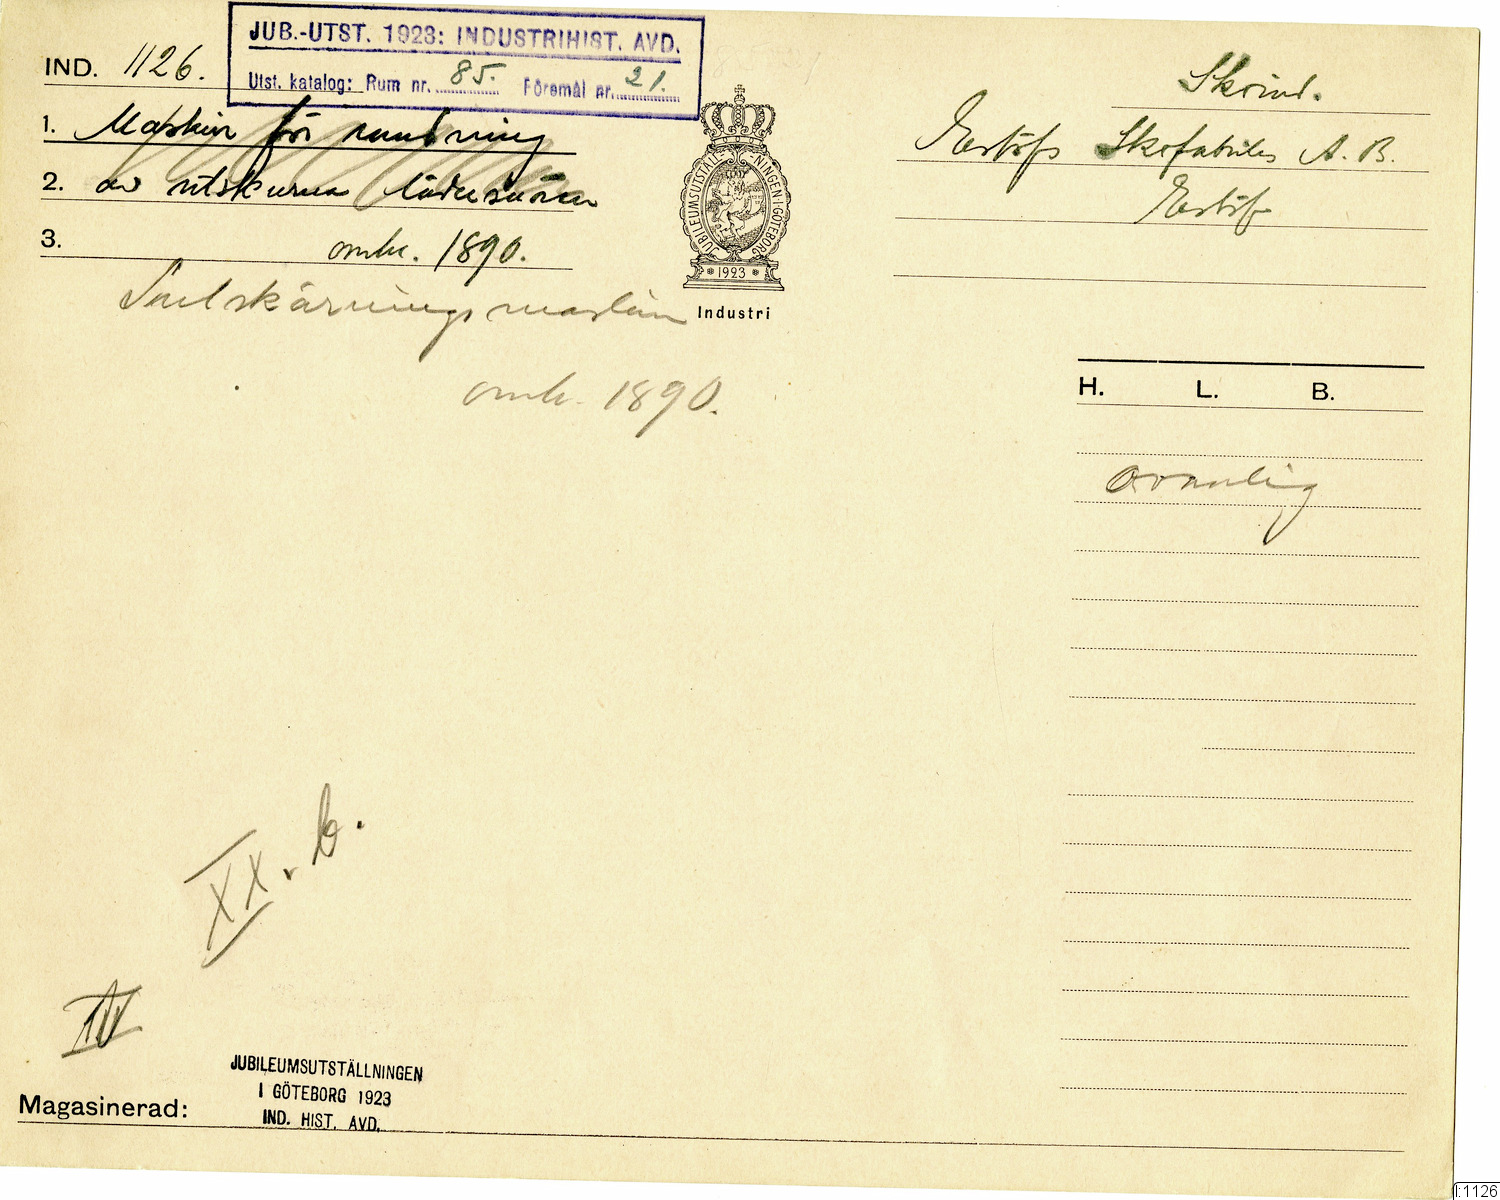 JUB.-UTST. 1923: INDUSTRIHIST. AVD.
Utst. katalog: Rum nr. 85. Föremål nr. 21.
IND. 1126.
1. Maskin för rundning
2. av utskurna lädersulor
3. omkr. 1890.
maskin
omkr. 1890.
JUBILEUMSUTSTÄLLNINGEN·I·GÖTEBORG
1923
Industri
Skoind.
Eslöfs Skofabriks A.B.
Eslöf
H. L. B.
ovanlig
XX. b.
IV
JUBILEUMSUTSTÄLLNINGEN
I GÖTEBORG 1923
IND. HIST. AVD.
Magasinerad:
I:1126